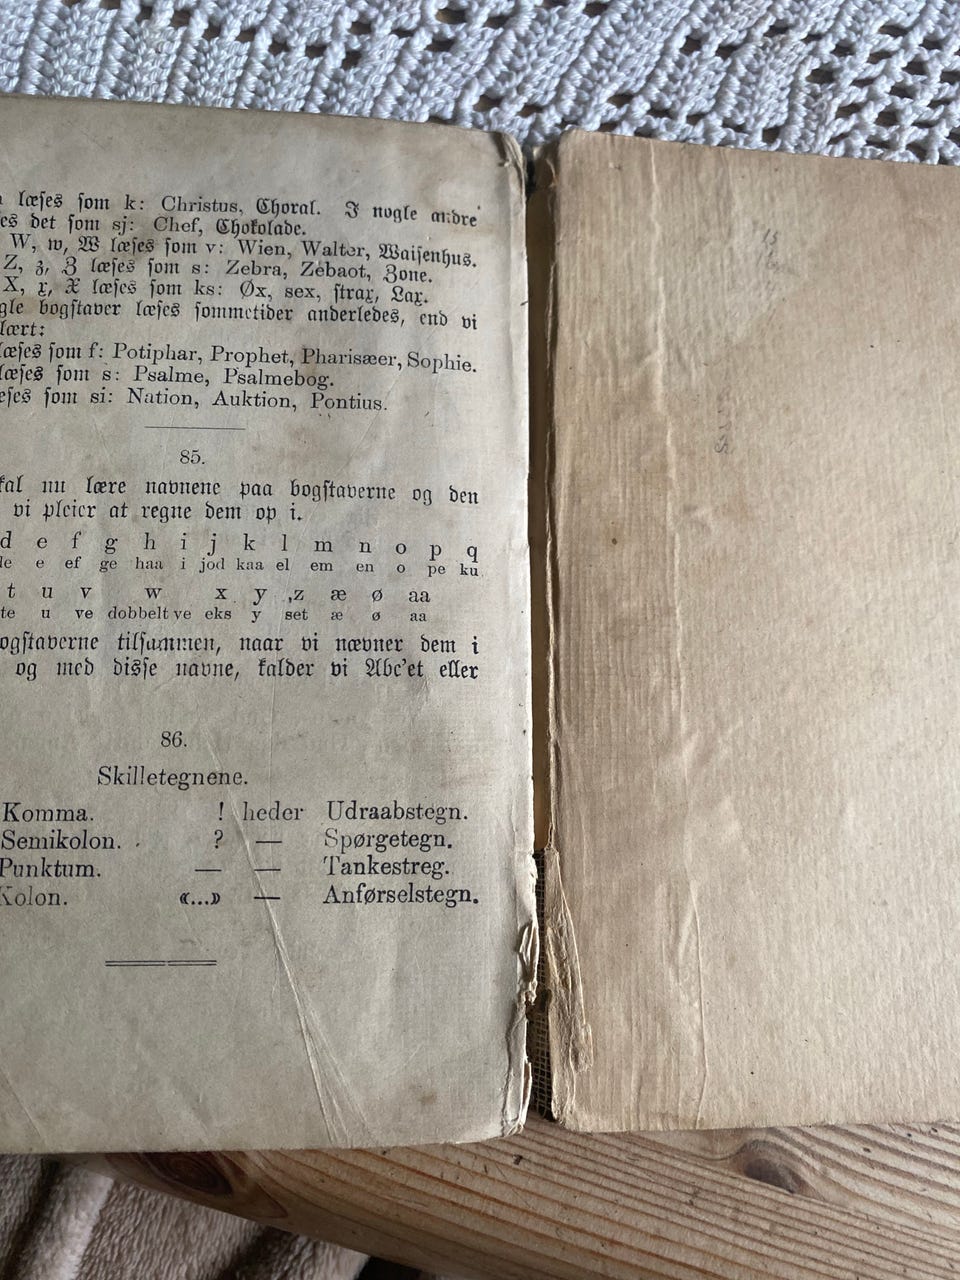 læses som k: Christus, Choral. I nogle andre
det som sj: Chef, Chokolade.
W, w, W læses som v: Wien, Walter, Waisenhus.
Z, z, Z læses som s: Zebra, Zebaot, Zone.
X, x, X læses som ks: Øx, sex, strax, Lax.
bogstaver læses sommetider anderledes, end vi
lært:
læses som f: Potiphar, Prophet, Pharisæer, Sophie.
læses som s: Psalme, Psalmebog.
som si: Nation, Auktion, Pontius.
85.
nu lære navnene paa bogstaverne og den
vi pleier at regne dem op i.
d e f g h i j k l m n o p q
e ef ge haa i jod kaa el em en o pe ku
t u v w x y z æ ø aa
te u ve dobbelt ve eks y set æ ø aa
ogstaverne tilsammen, naar vi nævner dem i
og med disse navne, kalder vi Abc'et eller
86.
Skilletegnene.
Komma. ! heder Udraabstegn.
Semikolon. ? — Spørgetegn.
Punktum. — — Tankestreg.
Kolon. «...» — Anførselstegn.